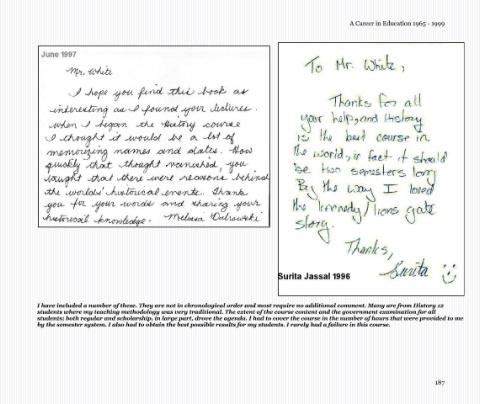 A Career in Education 1965 - 1999
June 1997
Mr. White
I hope you find this book as
interesting as I found your lectures.
When I began the history course
I thought it would be a lot of
memorizing names and dates. How
quickly that thought vanished, you
taught that there were reasons behind
the worlds' historical events. Thank
you for your words and sharing your
historical knowledge. Melissa
To Mr. White,
Thanks for all
your help, and History
is the best course in
the world, in fact it should
be two semesters long
By the way I loved
the Kennedy/lions gate
story.
Thanks,
Surita
Surita Jassal 1996
I have included a number of these. They are not in chronological order and most require no additional comment. Many are from History 12
students where my teaching methodology was very traditional. The extent of the course content and the government examination for all
students; both regular and scholarship, in large part, drove the agenda. I had to cover the course in the number of hours that were provided to me
by the semester system. I also had to obtain the best possible results for my students. I rarely had a failure in this course.
187